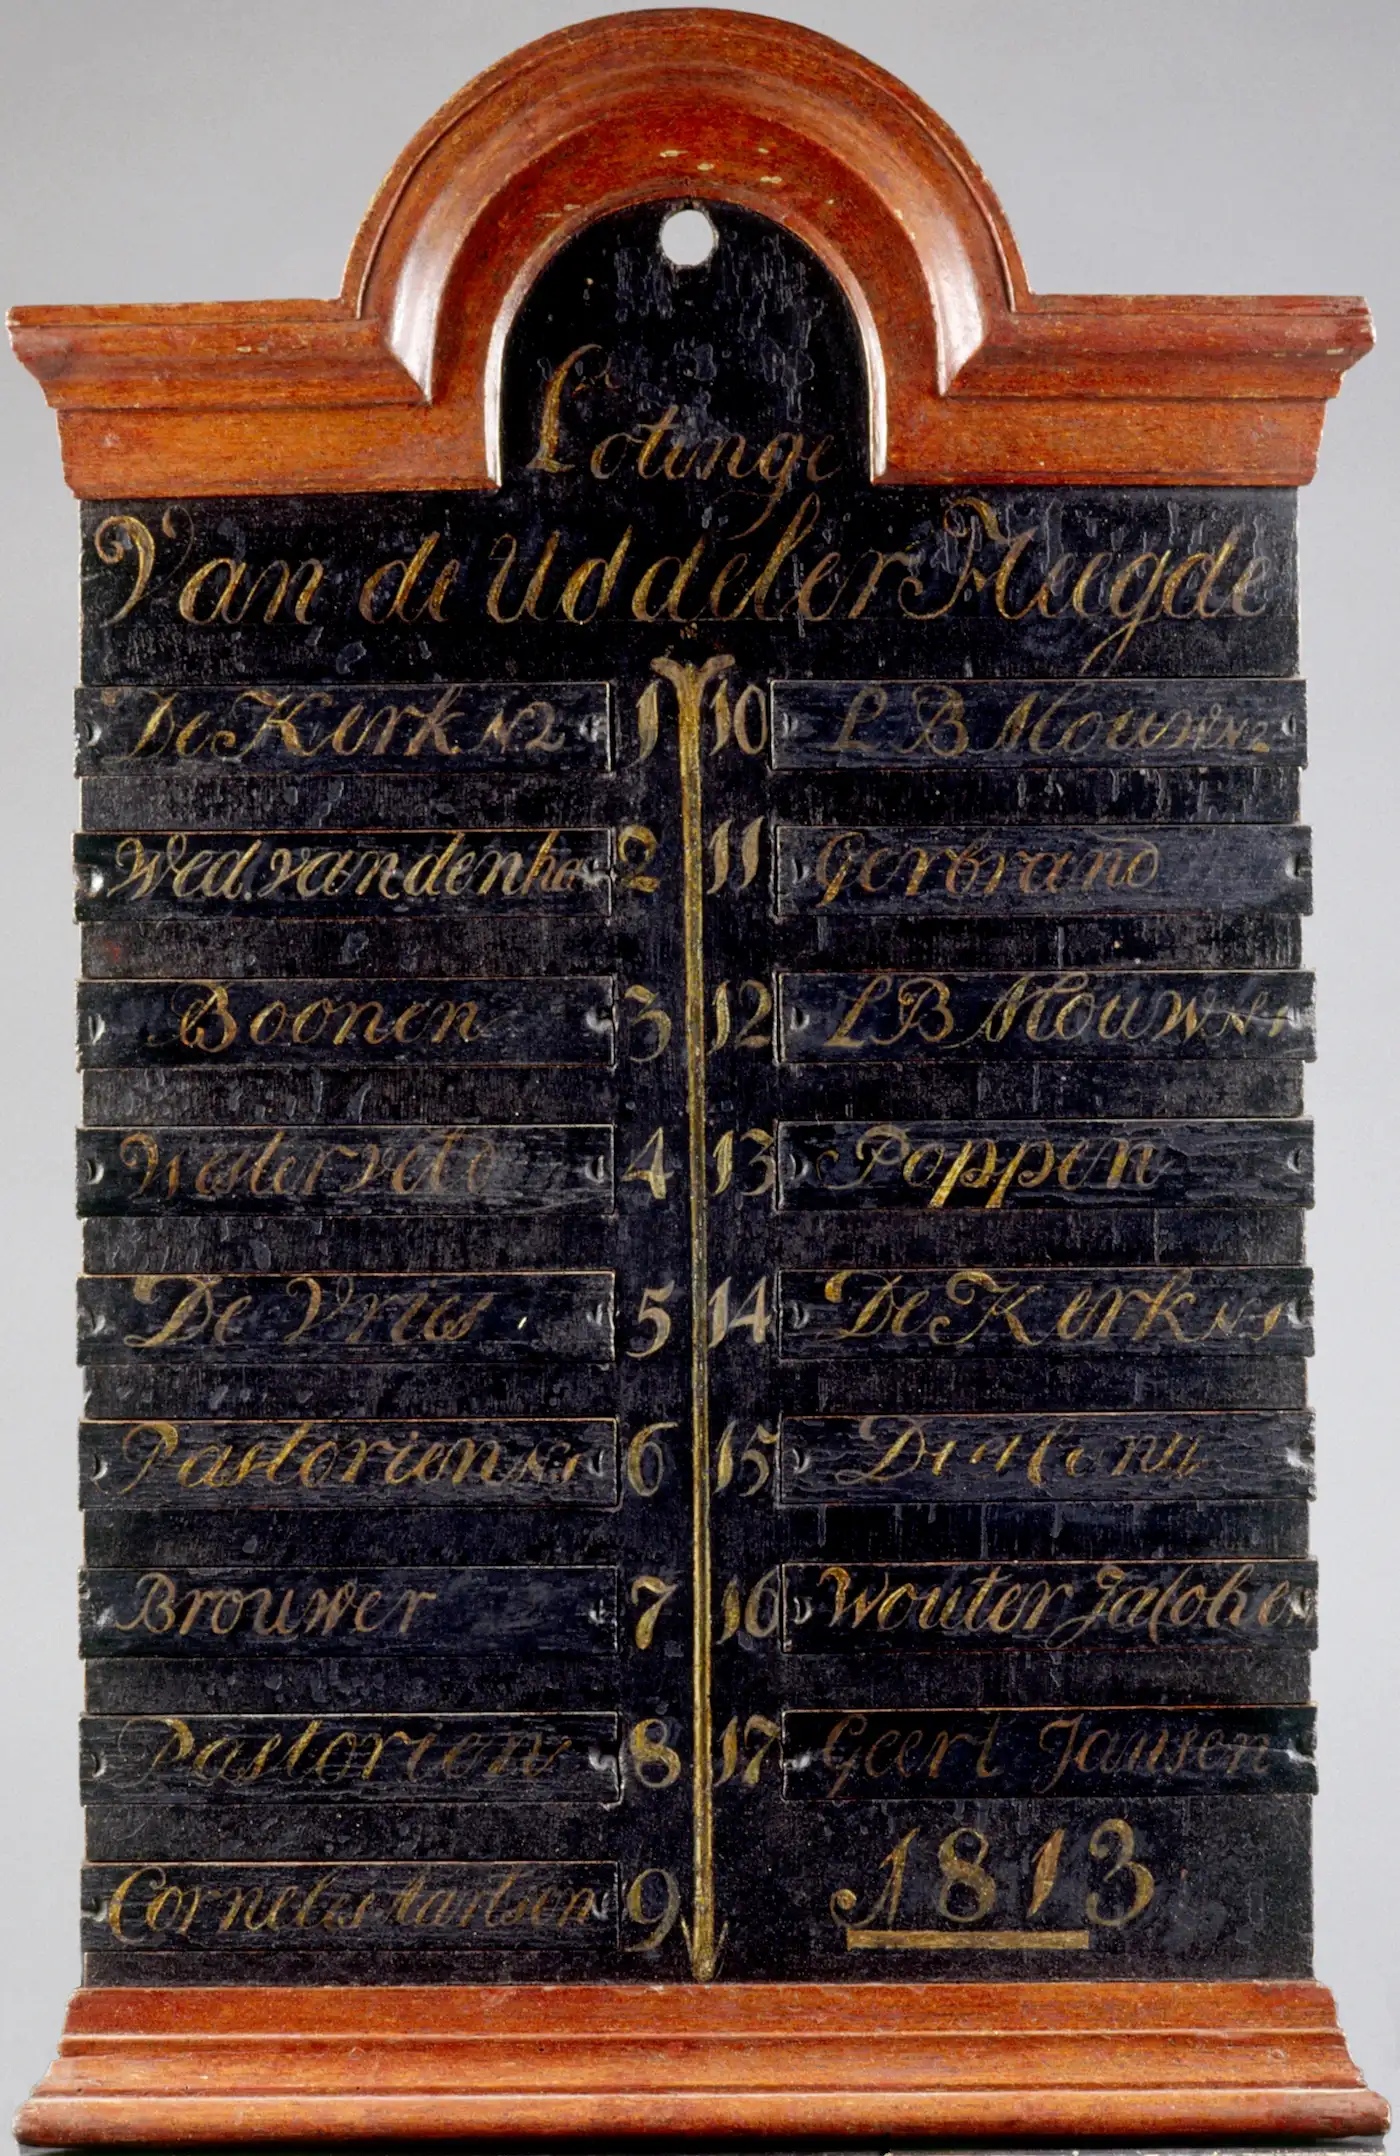 Lotinge
Van de Uddeler Meegde
N
De Kerk N2 1
Wed. van den 2
Boonen 3
Westerveld 4
De Vries 5
Pastorien N1 6
Brouwer 7
Pastorien 8
Cornelis Aartsen 9
10 L B Mouw N2
11 Gerbrand
12 L B Mouw N1
13 Poppen
14 De Kerk N1
15
16 Wouter Jacobsen
17 Geert Jansen
1813